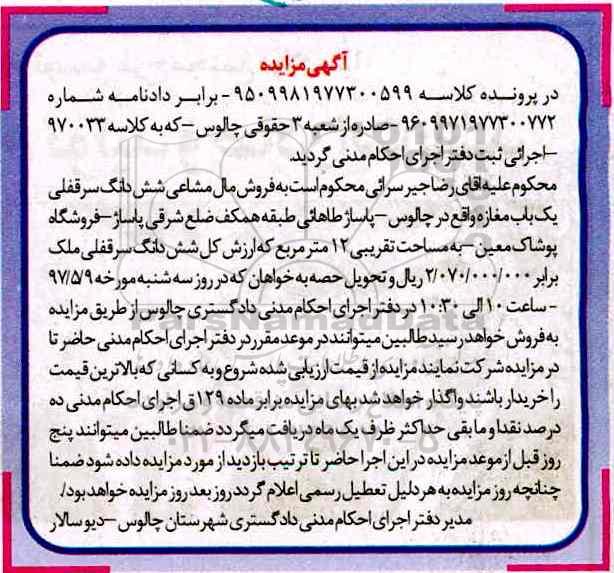 آگهی مزایده
در پرونده کلاسه ۹۵۰۹۹۸۱۹۷۷۳۰۰۵۹۹ - برابر دادنامه شماره
۹۶۰۹۹۷۱۹۷۷۳۰۰۷۷۲ - صادره از شعبه ۳ حقوقی چالوس - که به کلاسه ۹۷۰۰۳۳
- اجرائی ثبت دفتر اجرای احکام مدنی گردید.
محکوم علیه اقای رضا جیر سرائی محکوم است به فروش مال مشاعی شش دانگ سرقفلی
یک باب مغازه واقع در چالوس - پاساژ طاهائی طبقه همکف ضلع شرقی پاساژ - فروشگاه
پوشاک معین - به مساحت تقریبی ۱۲ متر مربع که ارزش کل شش دانگ سرقفلی ملک
برابر ۲/۰۷۰/۰۰۰/۰۰۰ ریال و تحویل حصه به خواهان که در روز سه شنبه مورخه ۹۷/۵/۹
- ساعت ۱۰ الی ۱۰:۳۰ در دفتر اجرای احکام مدنی دادگستری چالوس از طریق مزایده
به فروش خواهد رسید طالبین میتوانند در موعد مقرر در دفتر اجرای احکام مدنی حاضر تا
در مزایده شرکت نمایند مزایده از قیمت ارزیابی شده شروع و به کسانی که بالاترین قیمت
را خریدار باشند واگذار خواهد شد بهای مزایده برابر ماده ۱۲۹ ق اجرای احکام مدنی ده
درصد نقدا و مابقی حداکثر ظرف یک ماه دریافت میگردد ضمنا طالبین میتوانند پنج
روز قبل از موعد مزایده در این اجرا حاضر تا ترتیب بازدید از مورد مزایده داده شود ضمنا
چنانچه روز مزایده به هر دلیل تعطیل رسمی اعلام گردد روز بعد روز مزایده خواهد بود/.
مدیر دفتر اجرای احکام مدنی دادگستری شهرستان چالوس - دیو سالار
ParsNamadData
۰۲۱-۸۸۳۴۹۶۷۰-۵